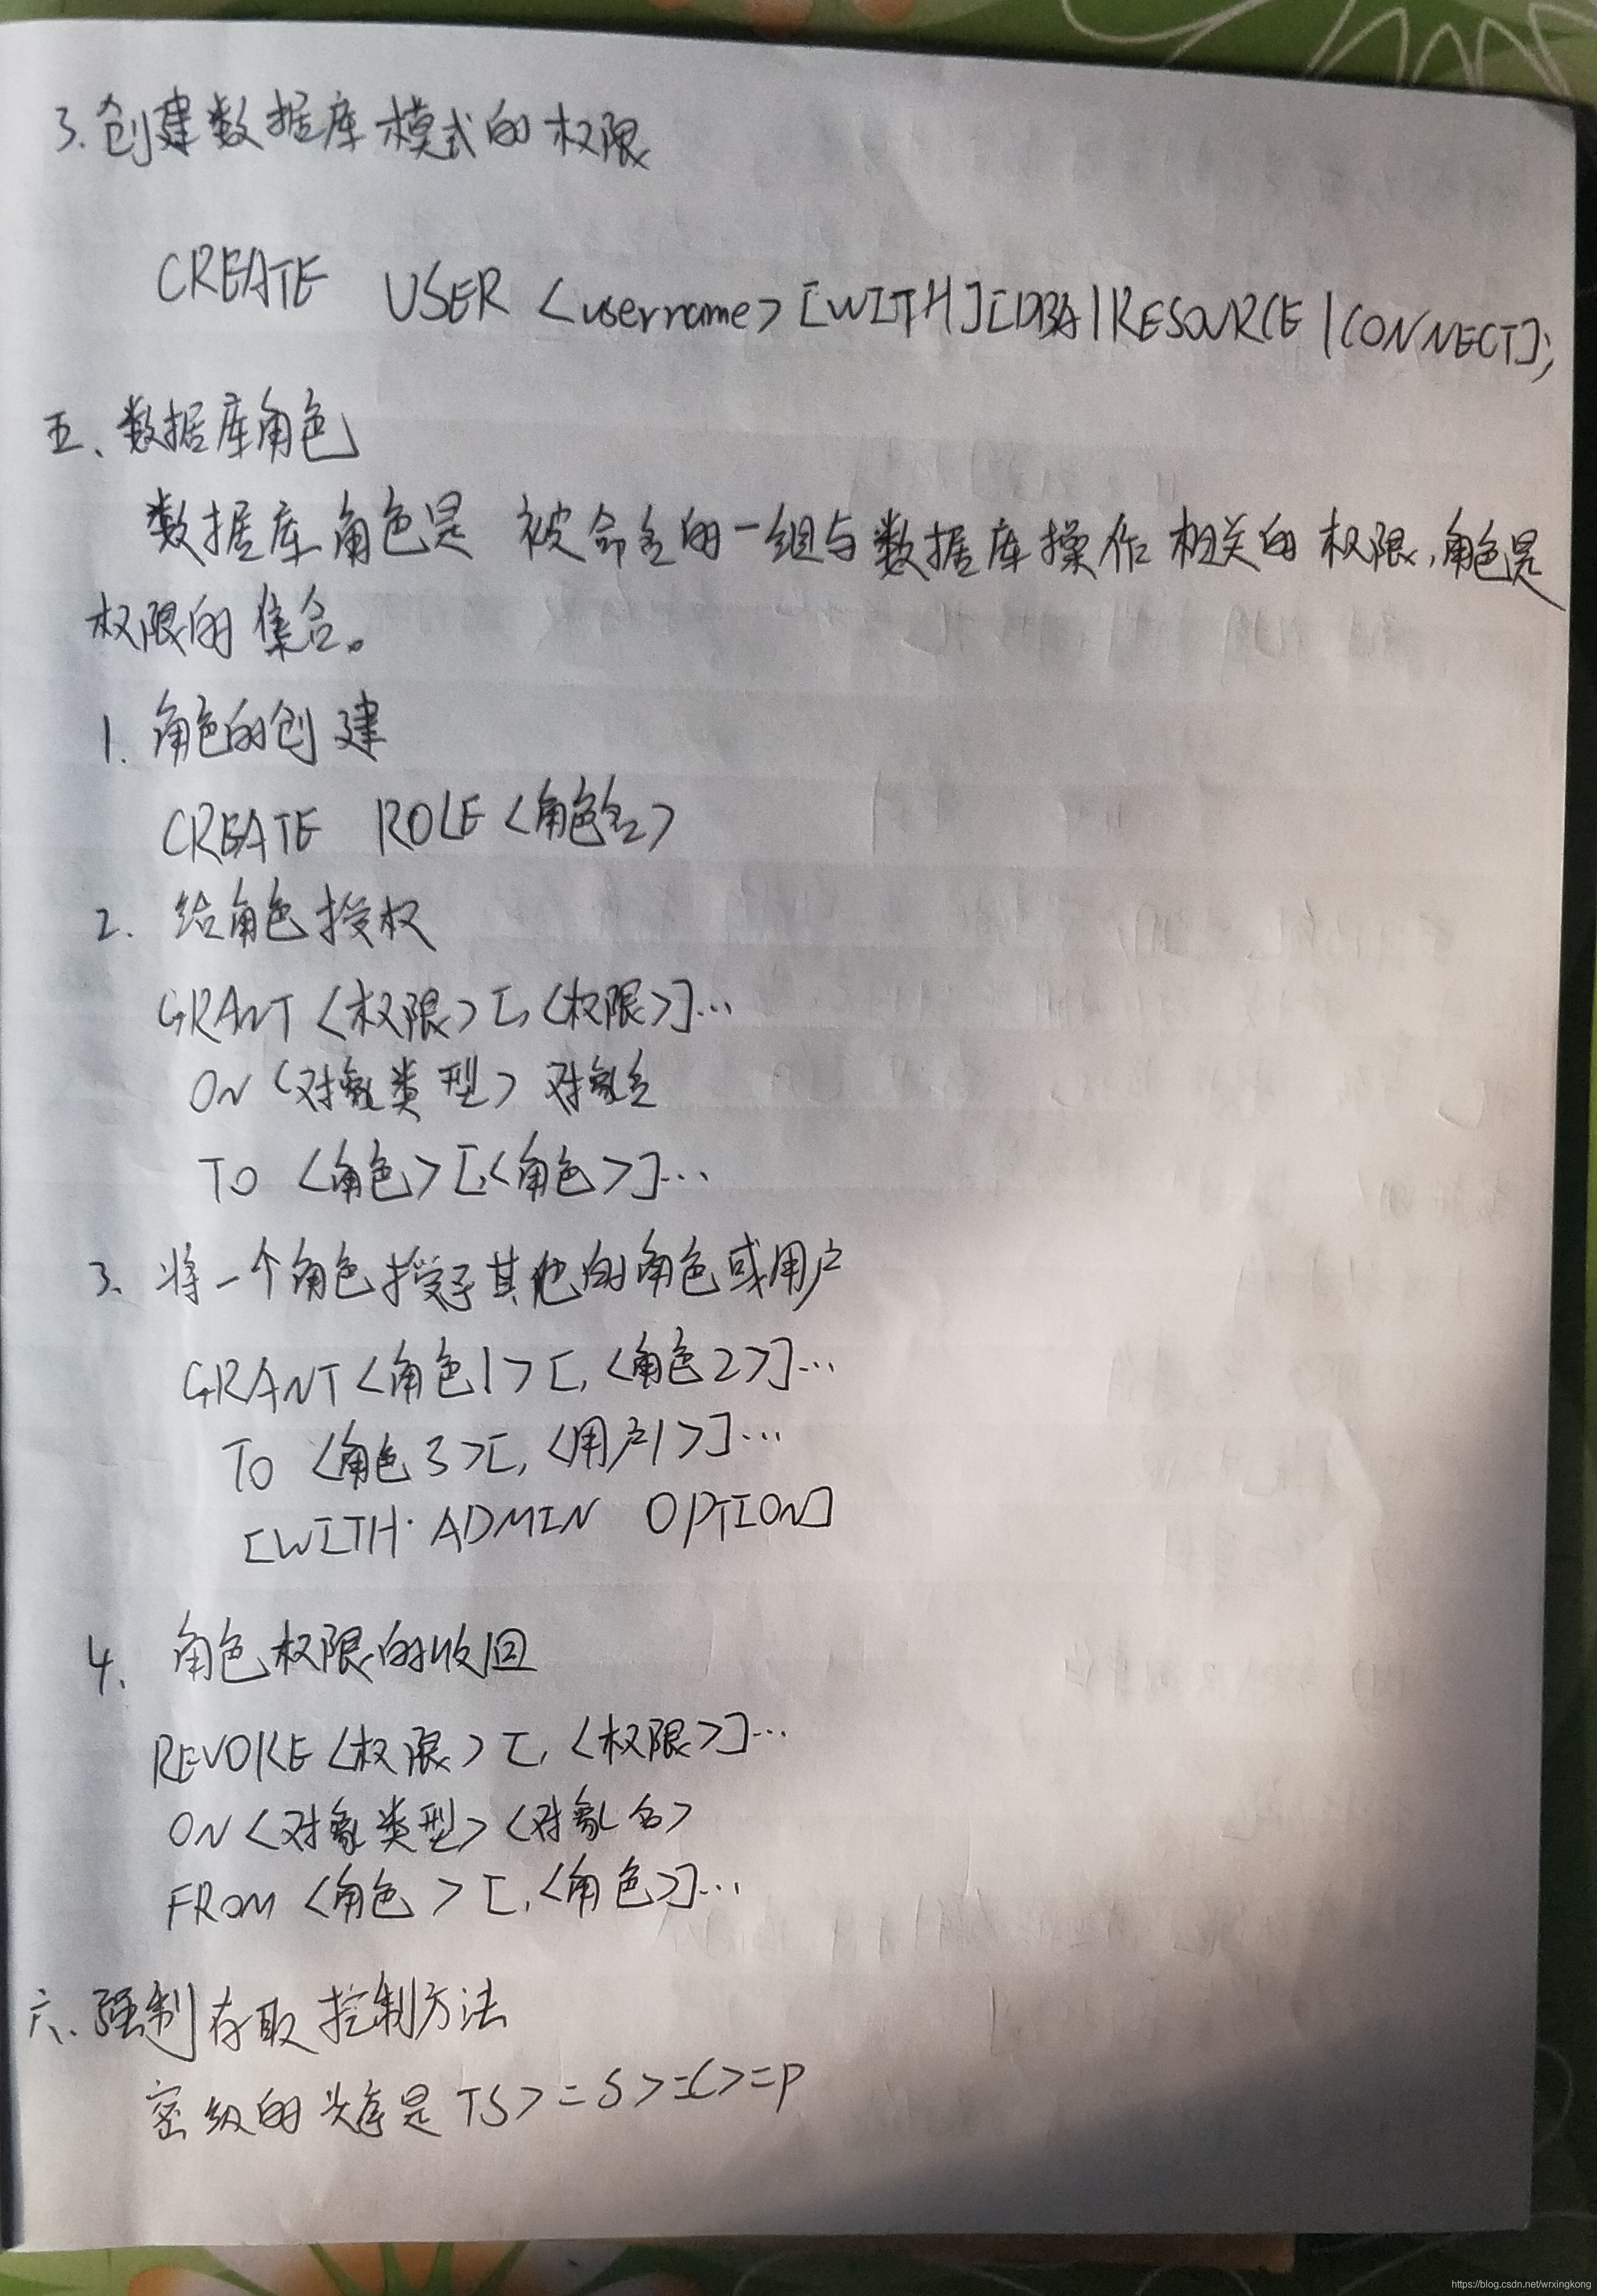 3.创建数据库模式的权限
CREATE USER <username>[WITH][DBA|RESOURCE|CONNECT];
五、数据库角色
数据库角色是 被命名的一组与数据库操作相关的权限,角色是
权限的集合。
1.角色的创建
CREATE ROLE <角色名>
2.给角色授权
GRANT <权限>[,<权限>]...
ON <对象类型> 对象名
TO <角色>[,<角色>]...
3、将一个角色授予其他的角色或用户
GRANT <角色1>[,<角色2>]...
TO <角色3>[,<用户1>]...
[WITH ADMIN OPTION]
4、角色权限的收回
REVOKE <权限>[,<权限>]...
ON <对象类型> <对象名>
FROM <角色>[,<角色>]...
六、强制存取控制方法
密级的次序是 TS>=S>=C>=P
https://blog.csdn.net/wrxingkong